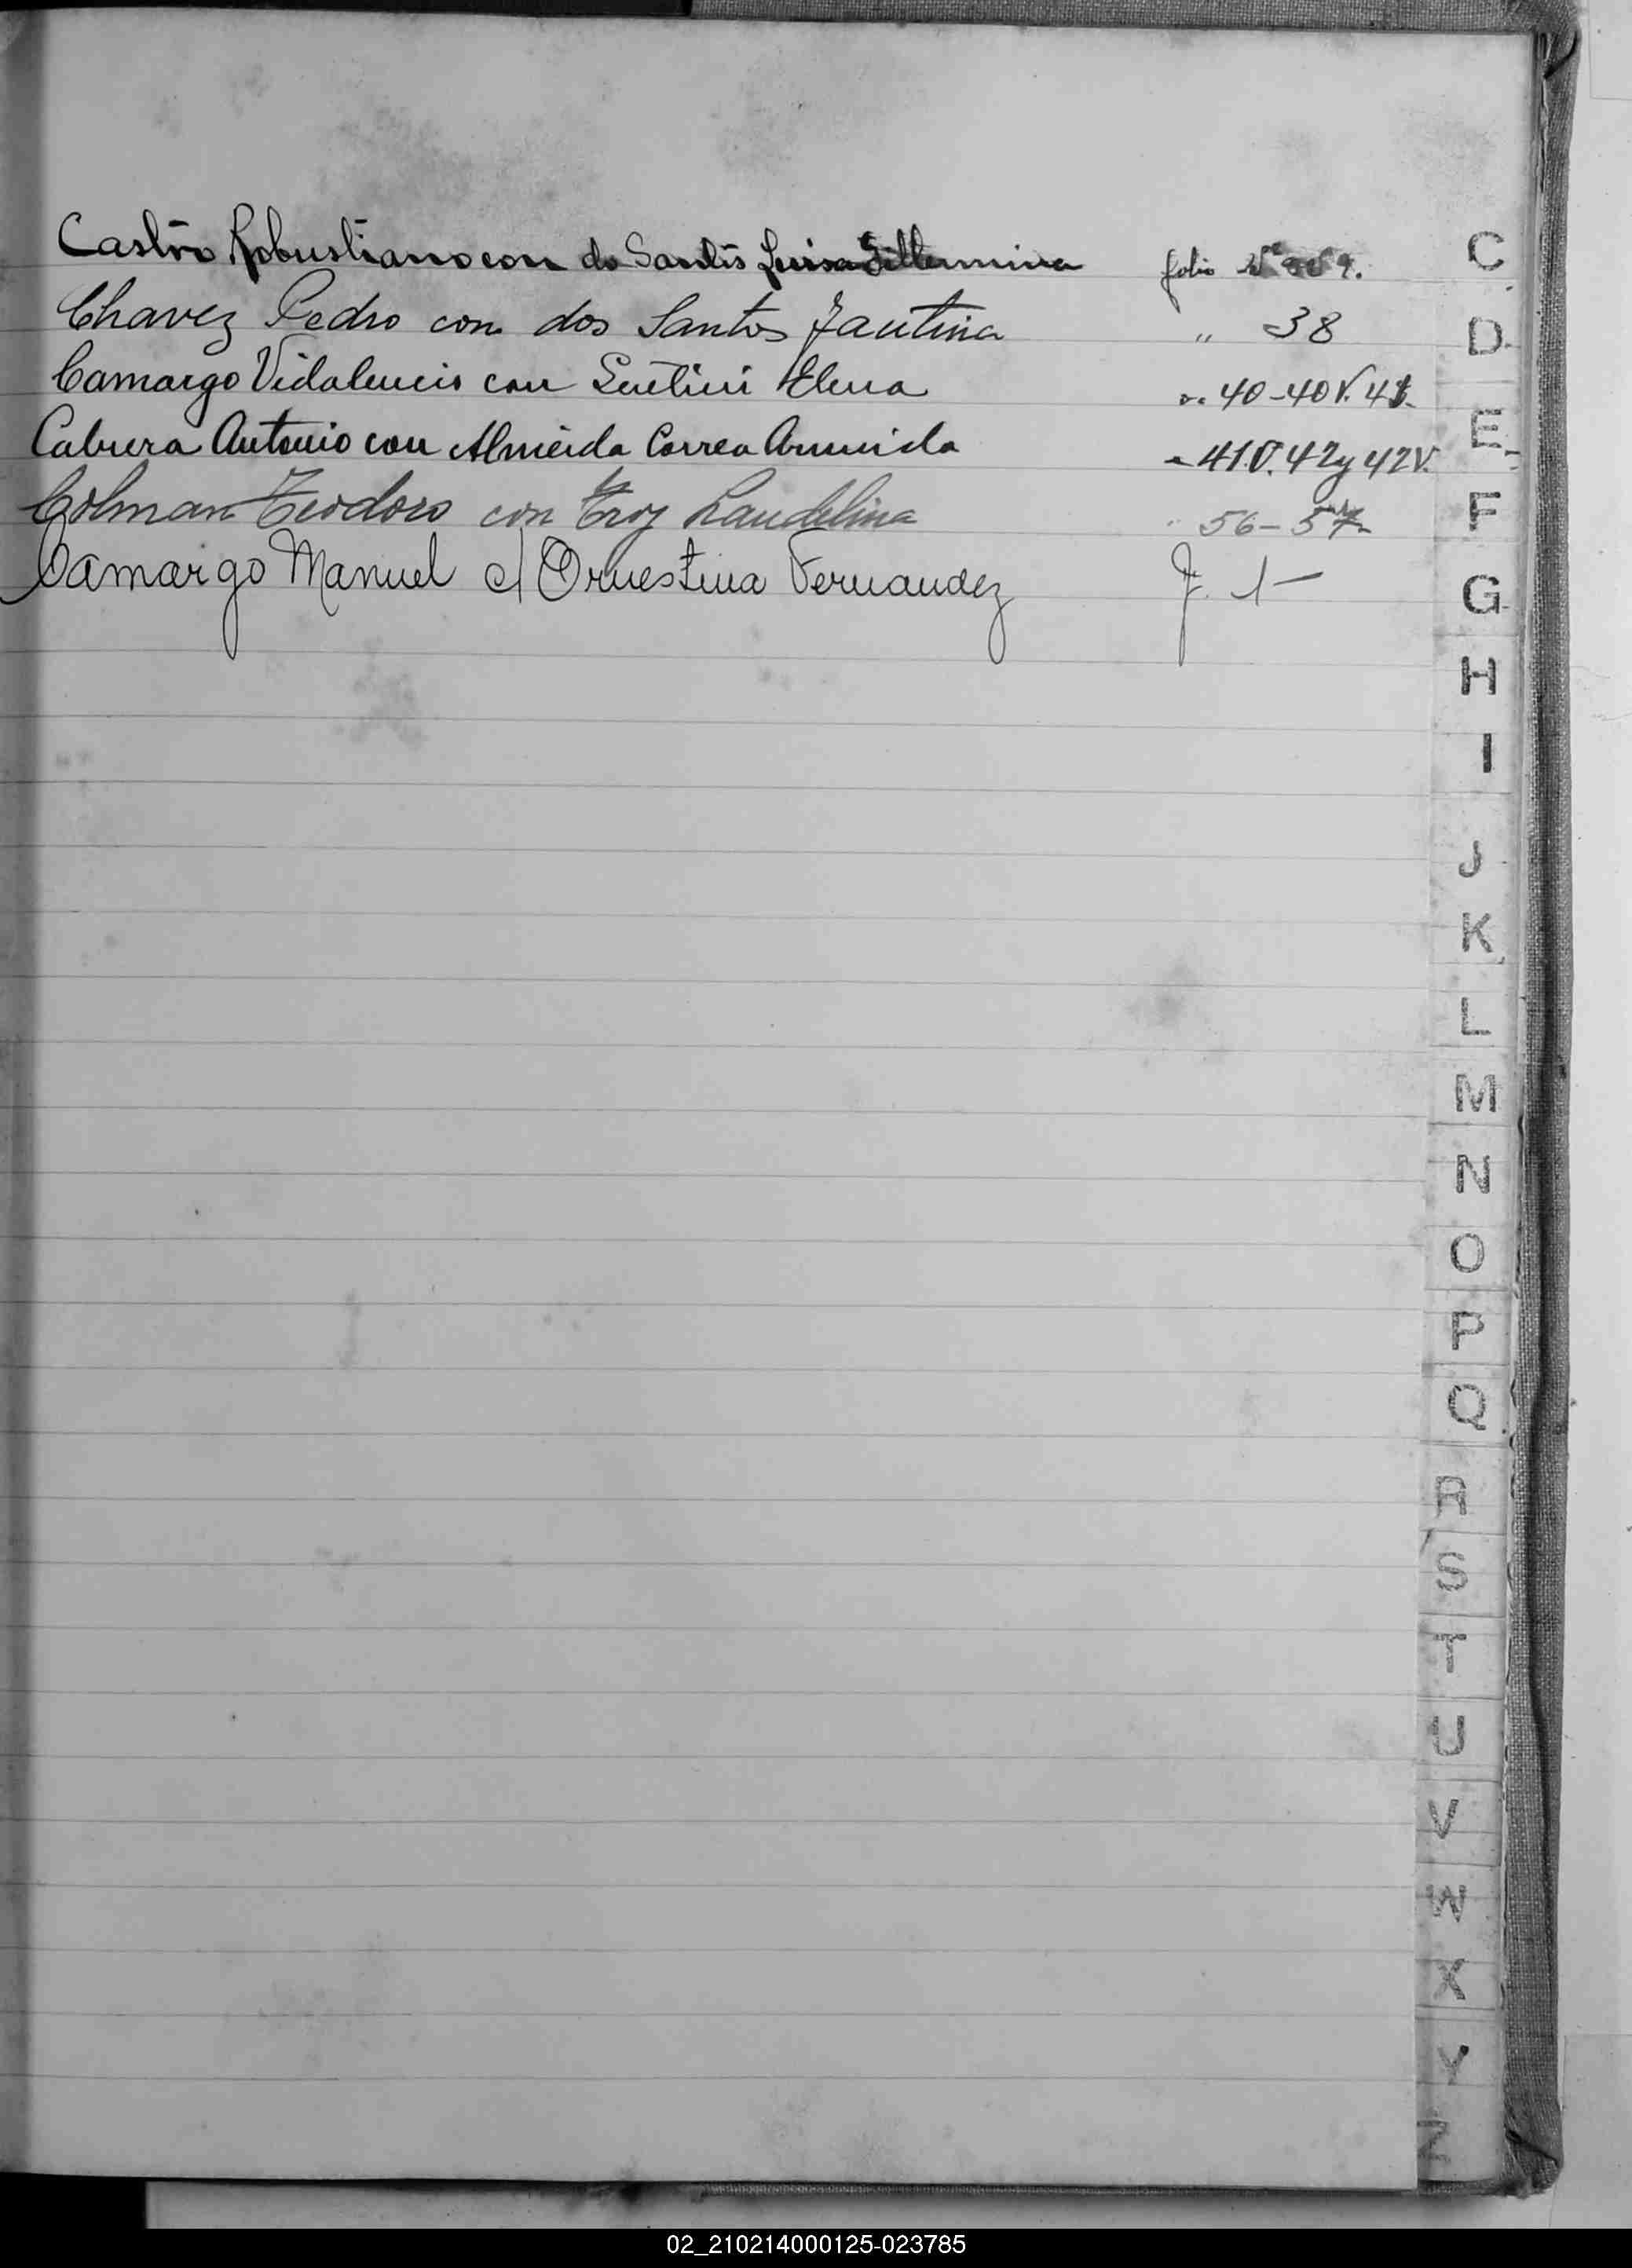 Castro Robustiano con do Santos Luisa Gillermina folio
Chavez Pedro con dos Santos Fautina " 38
Camargo Vidalencio con Elena " 40-40V. 41-
Cabrera Antonio con Almeida Correa Arminda " 41V. 42 y 42V.
Colman Teodoro con Laudelina " 56-57-
Camargo Manuel c/ Ornestina Fernandez F. 1-
C
D
E
F
G
H
I
J
K
L
M
N
O
P
Q
R
S
T
U
V
W
X
Y
Z
02_210214000125-023785